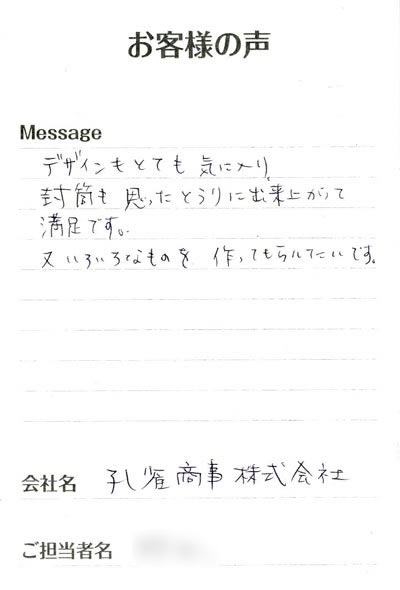 お客様の声
Message
デザインもとても 気に入り、
封筒も 思ったとうりに出来上がって
満足です。
又いろいろなものを 作ってもらいたいです。
会社名 孔雀商事株式会社
ご担当者名